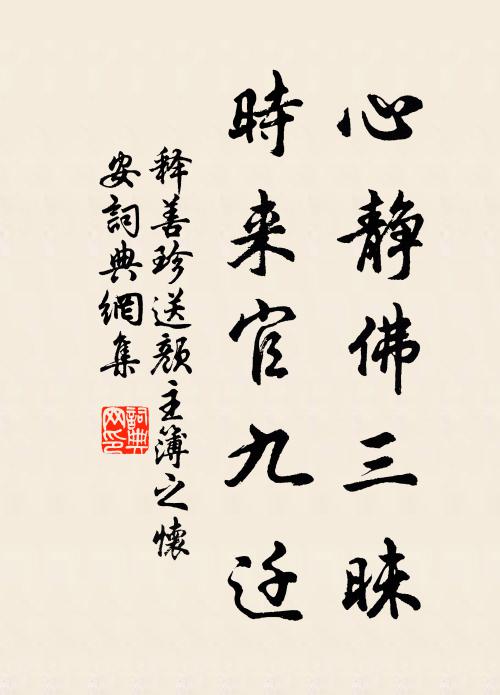 心静佛三昧
時来官九迁
释善珍送颜主簿之懷
安詞典網集
詞典网印